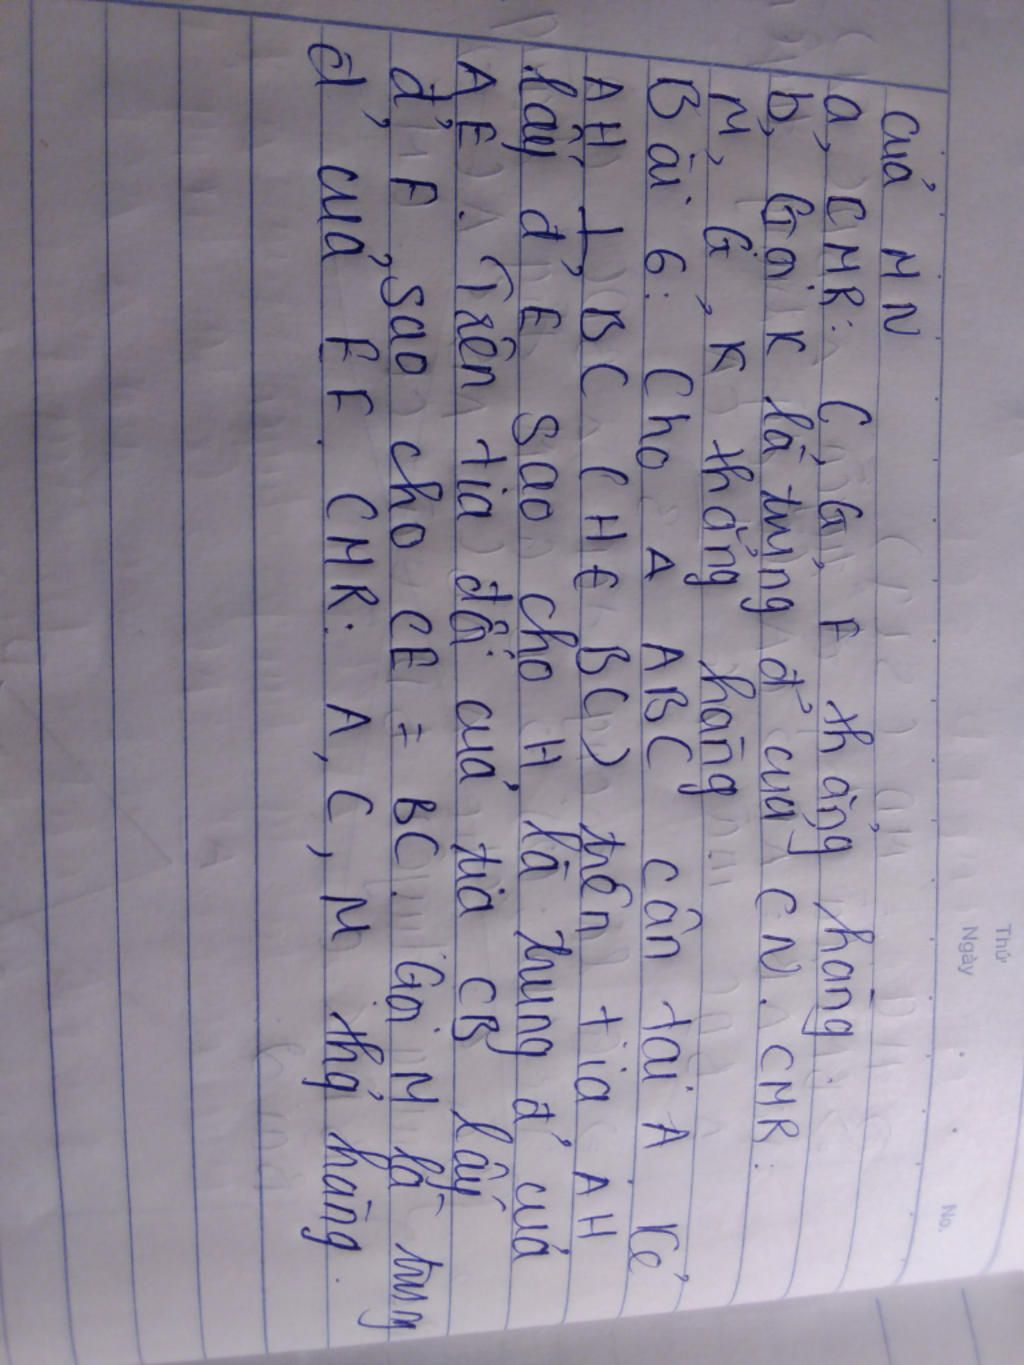 Thứ
Ngày
No.
của MN
a, CMR: C, G, F thẳng hàng
b, Gọi K là trung đ' của CN. CMR:
M, G, K thẳng hàng
Bài 6: Cho Δ ABC cân tại A kẻ
AH ⊥ BC (H ∈ BC) trên tia AH
lấy đ' E sao cho H là trung đ' của
AE. Trên tia đối của tia CB lấy
đ' F sao cho CF = BC. Gọi M là trung
đ' của EF. CMR: A, C, M thẳ hàng.